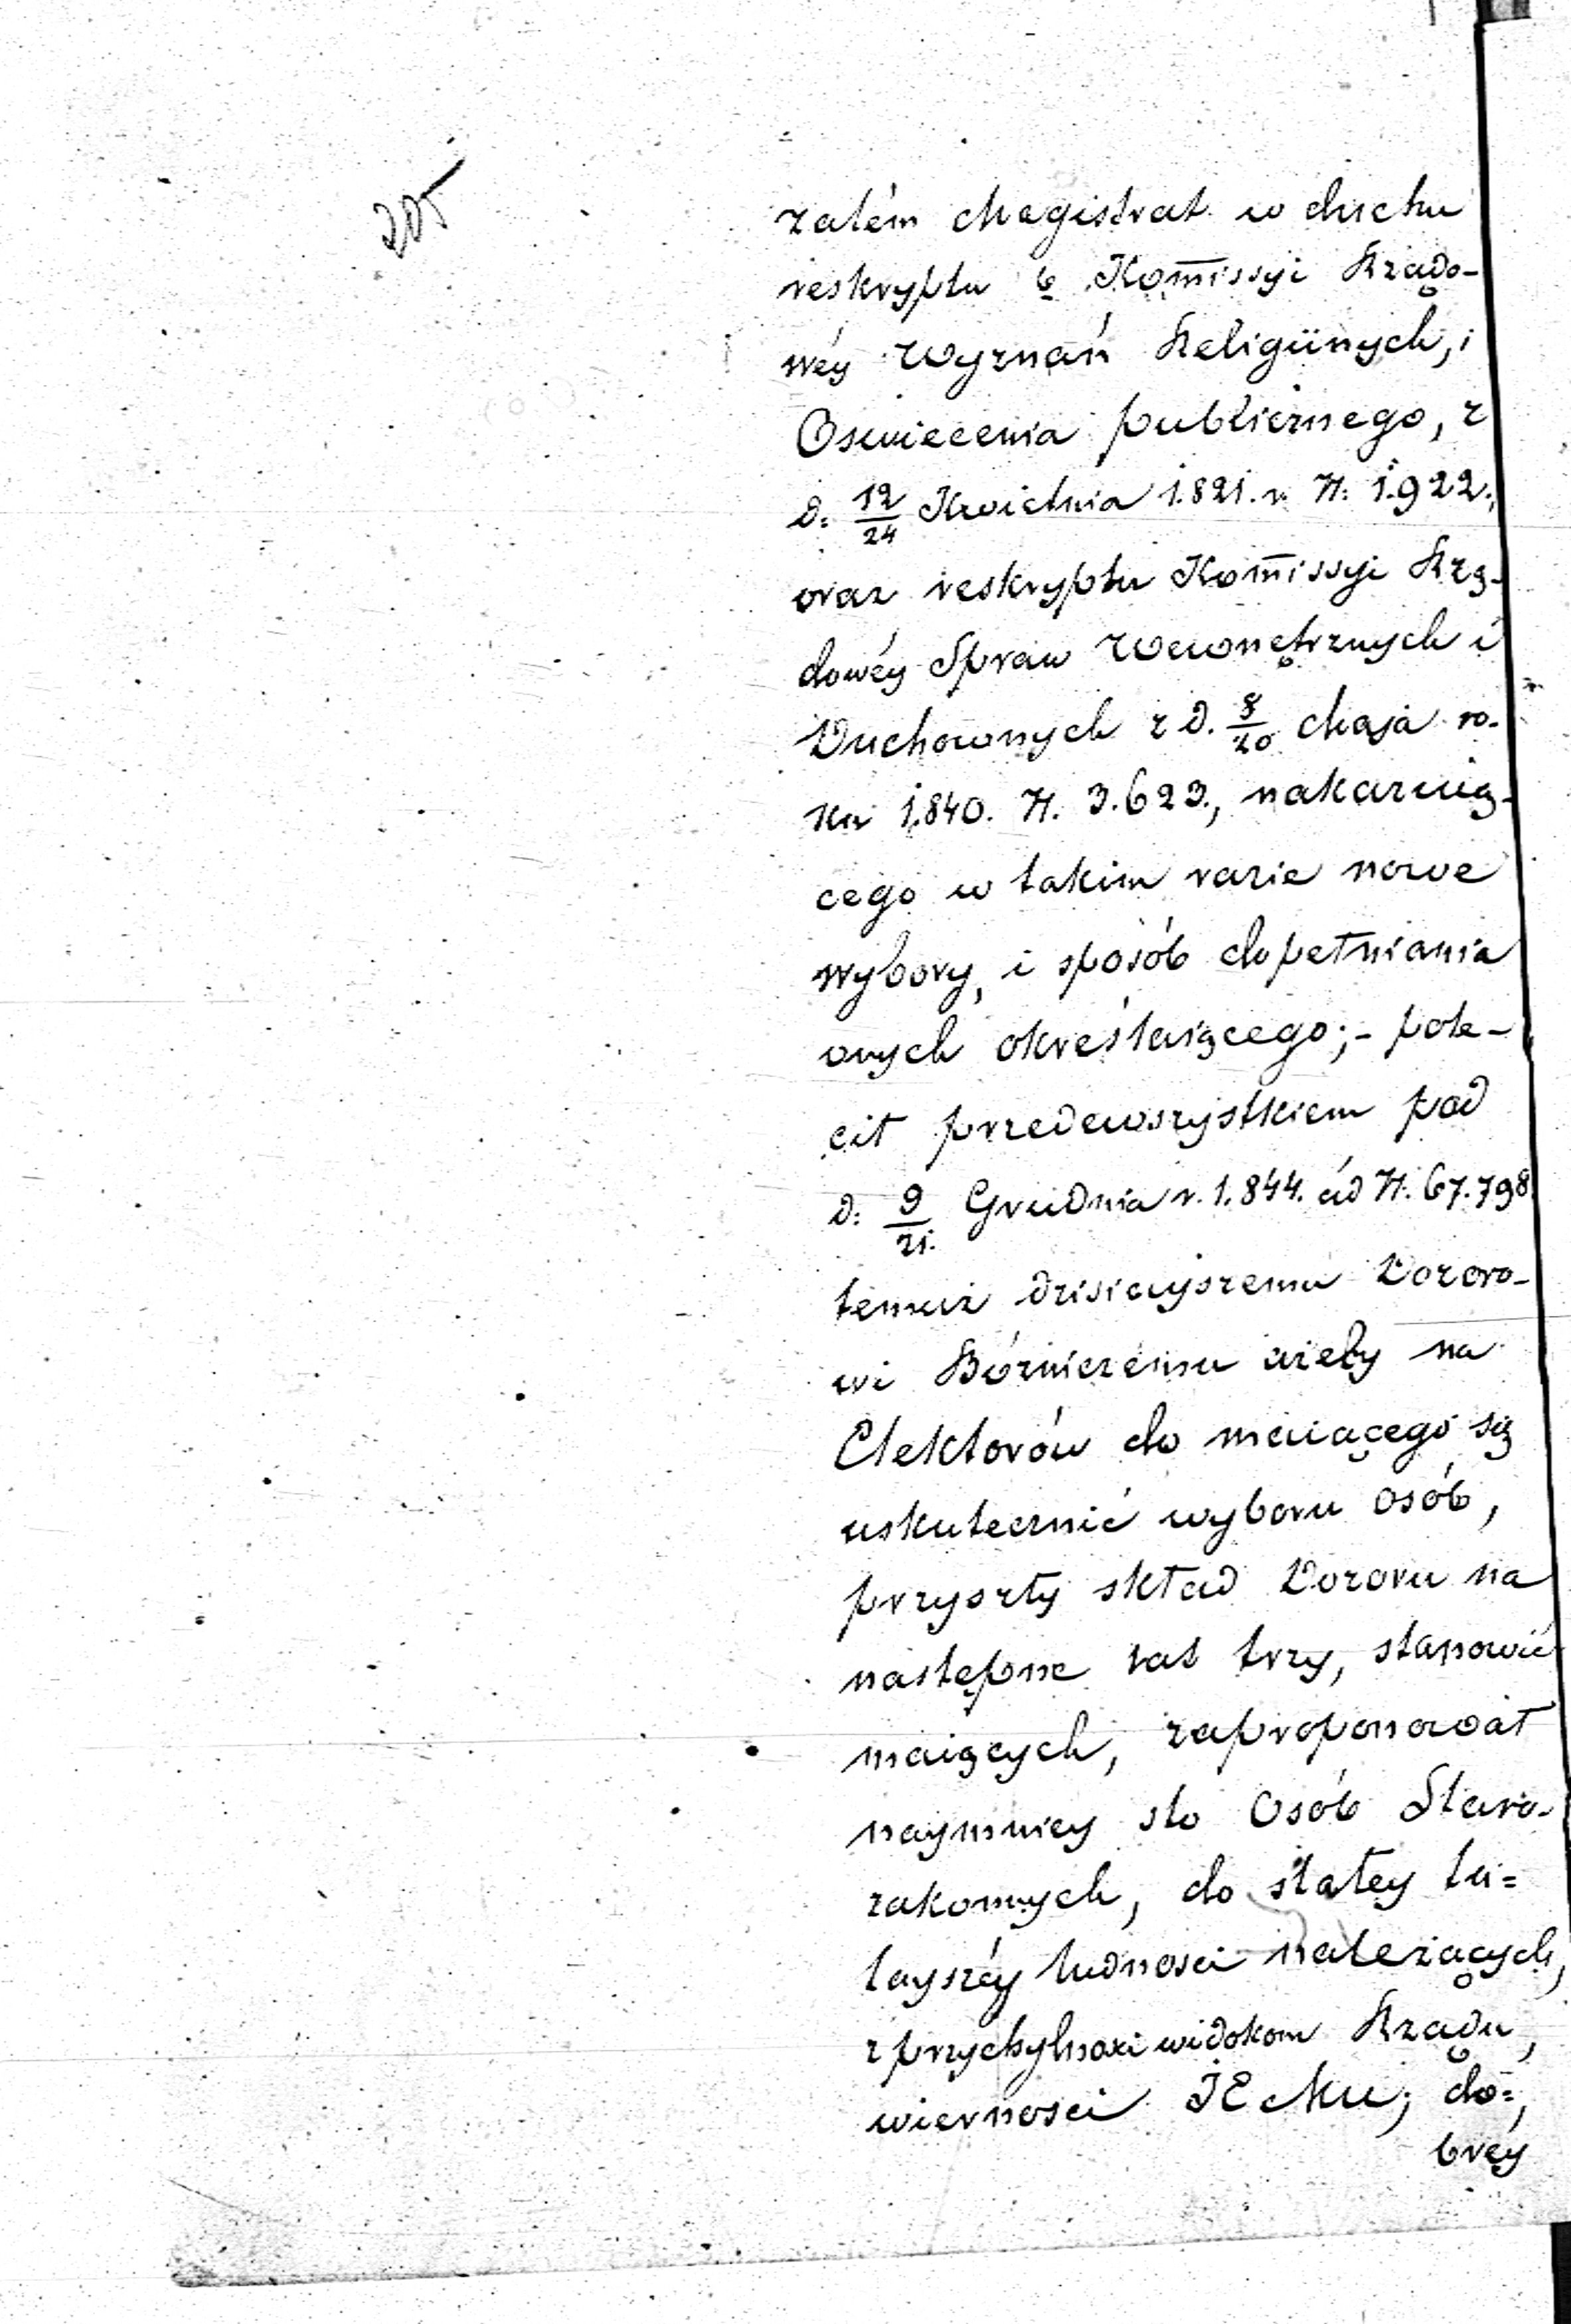 205
zatém Magistrat w duchu
reskryptu b Kom̅issyi Rządo-
wéy Wyznań Religiinych, i
Oswiecenia publicznego, z
d: 12/24 Kwietnia 1.821. r. N: 1.922.,
oraz reskryptu Kom̅issyi Rzą-
dowéy Spraw Wewnętrznych i
Duchownych z d. 8/20 Maja ro-
ku 1.840. N. 3.623., nakazuią-
cego w takim razie nowe
wybory, i sposób dopełniania
onych określaiącego; - pole-
cił przedewszystkiem pod
d: 9/21. Grudnia r. 1.844. ad N: 67.798
temuż dzisieyszemu Dozoro-
wi Bóżniczemu ażeby na
Elektorów do maiącego się
uskutecznić wyboru osób,
przyszły skład Dozoru na
następne lat trzy, stanowić
maiących, zaproponował
naymniey sto Osób Staro-
zakonnych, do stałey tu=
tayszéy ludności należących,
z przychylności widokom Rządu,
wierności JE Mu; do=,
bréy